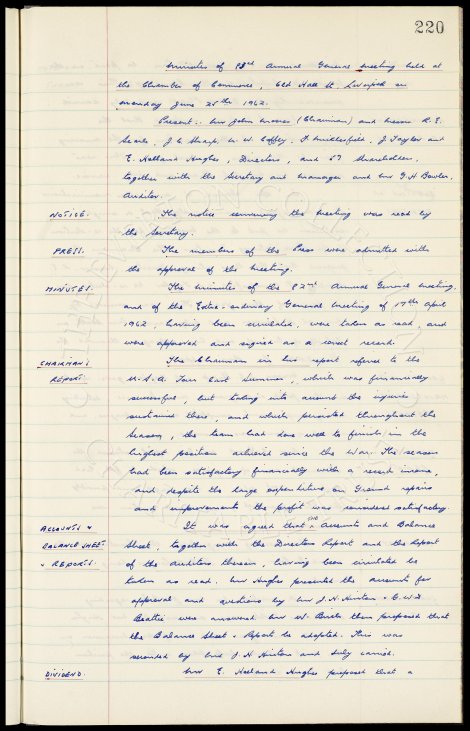 220
Minutes of 83rd Annual General Meeting held at
the Chamber of Commerce, Old Hall St, Liverpool on
Monday June 25th 1962.
Present:- Mr John Moores (Chairman) and Messrs R.E.
Searle, J.C. Sharp, W.W. Coffey, F. Micklesfield, J Taylor and
E. Holland Hughes, Directors, and 57 Shareholders,
together with the Secretary and Manager and Mr G.H. Bowler,
Auditor.
NOTICE. The notice convening the meeting was read by
the Secretary.
PRESS. The members of the Press were admitted with
the approval of the Meeting.
MINUTES. The Minutes of the 82nd Annual General Meeting,
and of the Extra-ordinary General Meeting of 17th April
1962, having been circulated, were taken as read, and
were approved and signed as a correct record.
CHAIRMAN'S The Chairman in his report referred to the
REPORT. U.S.A. Tour last Summer, which was financially
successful, but taking into account the injuries
sustained there, and which persisted throughout the
Season, the team had done well to finish in the
highest position achieved since the War. The season
had been satisfactory financially with a record income,
and despite the large expenditure on Ground repairs
and improvements the profit was considered satisfactory.
ACCOUNTS & It was agreed that the Accounts and Balance
BALANCE SHEET Sheet, together with the Directors Report and the Report
& REPORTS. of the Auditors thereon, having been circulated be
taken as read. Mr Hughes presented the accounts for
approval and questions by Mr J.H. Hinton & C.W.D
Beattie was answered Mr W. Birch then proposed that
the Balance Sheet & Report be adopted. This was
seconded by Mr J H Hinton and duly carried.
DIVIDEND. Mr E. Holland Hughes proposed that a